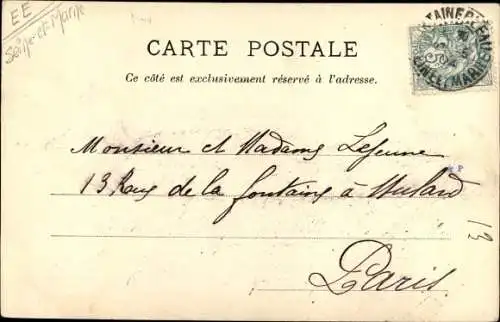 EE
Seine-et-Marne
CARTE POSTALE
Ce côté est exclusivement réservé à l'adresse.
Monsieur et Madame Lejeune
13 Rue de la fontaine à Mulard
13
Paris